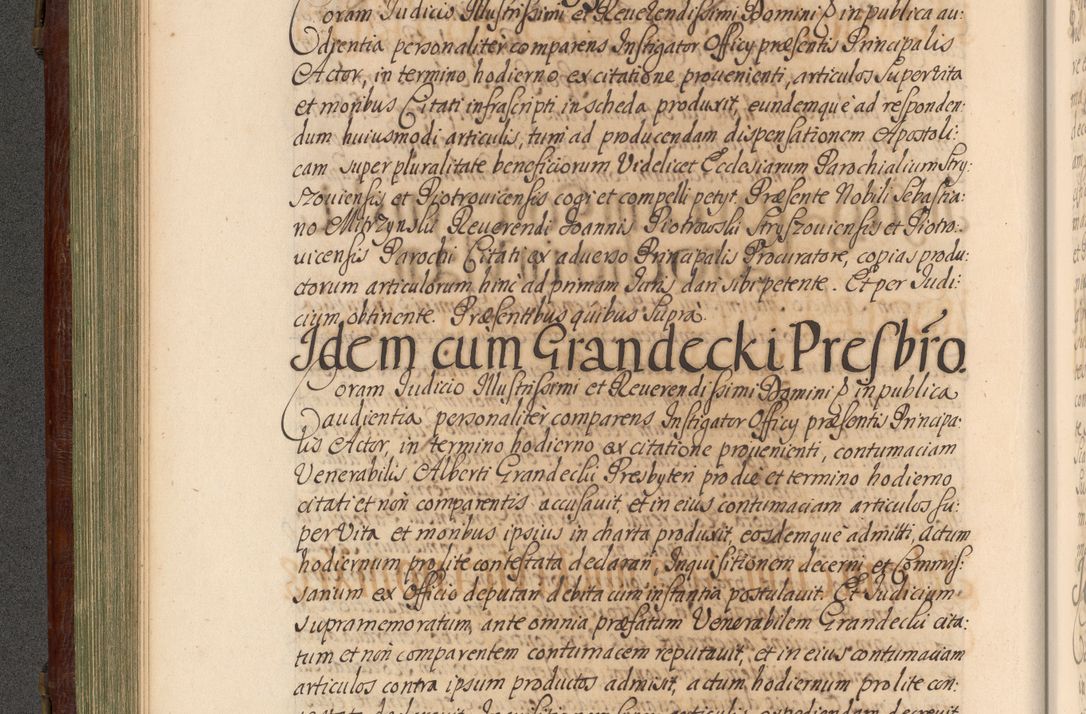 Coram Iudicio Illustrissimi et Reuerendissimi Domini D in publica au:
dientia personaliter comparens Instigator Officij præsentis Principalis
Actor, in termino hodierno ex citatione prouenienti, articulos super vita
et moribus Citati infrascripti in scheda produxit, eundemque ad responden:
dum huiusmodi articulis, tum ad producendam dispensationem Apostoli:
cam super pluralitate beneficiorum Videlicet Ecclesiarum Parochialium Stry:
szouiensis et Piotrouicensis cogi et compelli petijt. Præsente Nobili Sebastia:
no Mętrzynski Reuerendi Joannis Piotrowski Stryszouiensis et Piotro:
uicensis Parochi Citati ex aduerso Principalis Procuratore, copias produ:
ctorum articulorum hinc ad primam Juris dari sibi petente. Et per Judi:
cium obtinente. Præsentibus quibus supra.
Idem cum Grandecki Presbro.
Coram Iudicio Illustrissimi et Reuerendissimi Domini D in publica
audientia personaliter comparens Instigator Officij præsentis Principa:
lis Actor, in termino hodierno ex citatione prouenienti, contumaciam
Venerabilis Alberti Grandecki Presbyteri pro die et termino hodierno
citati et non comparentis accusauit, et in eius contumaciam articulos su:
per Vita et moribus ipsius in charta produxit, eosdemque admitti, actum
hodiernum pro lite contestata declarari, Inquisitionem decerni et Commis:
sarium ex Officio deputari debita cum instantia postulauit. Et Iudicium
supramemoratum, ante omnia præfatum Venerabilem Grandecki cita:
tum et non comparentem contumacem reputauit, et in eius contumaciam
articulos contra ipsum productos admisit, actum hodiernum pro lite con: